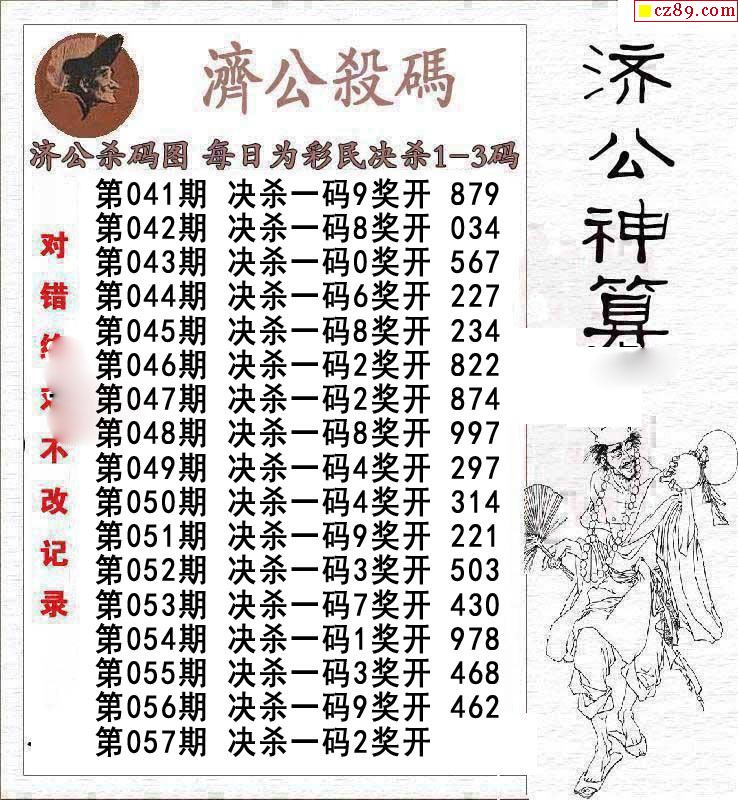 cz89.com
濟公殺碼
济公杀码图 每日为彩民决杀1-3码
第041期 决杀一码9奖开 879
第042期 决杀一码8奖开 034
第043期 决杀一码0奖开 567
第044期 决杀一码6奖开 227
第045期 决杀一码8奖开 234
第046期 决杀一码2奖开 822
第047期 决杀一码2奖开 874
第048期 决杀一码8奖开 997
第049期 决杀一码4奖开 297
第050期 决杀一码4奖开 314
第051期 决杀一码9奖开 221
第052期 决杀一码3奖开 503
第053期 决杀一码7奖开 430
第054期 决杀一码1奖开 978
第055期 决杀一码3奖开 468
第056期 决杀一码9奖开 462
第057期 决杀一码2奖开
对错
不改记录
济公神算